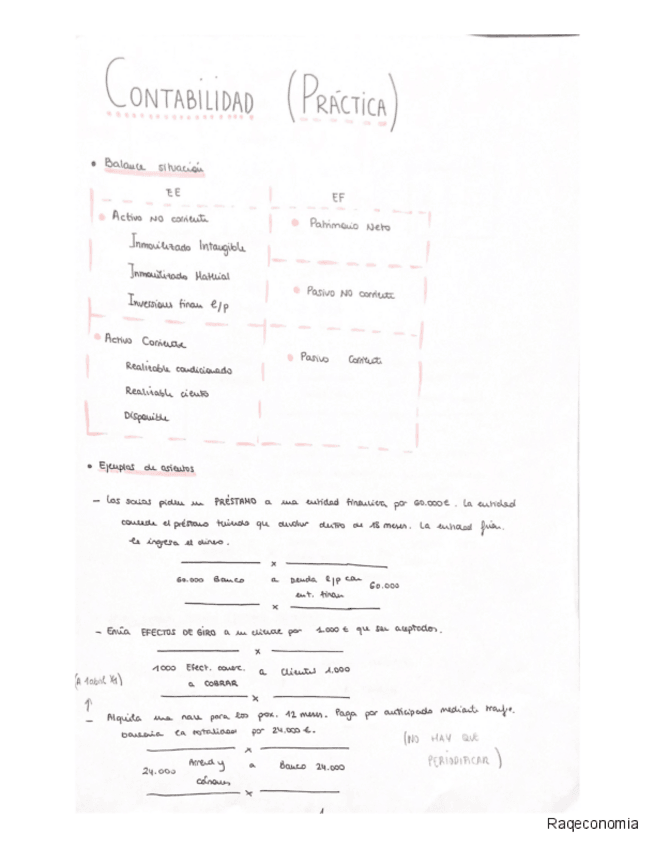 CONTABILIDAD (PRÁCTICA)
• Balance situación
EE EF
• Activo NO corriente • Patrimonio Neto
Inmovilizado Intangible
Inmovilizado Material
Inversiones finan l/p • Pasivo NO corriente
• Activo Corriente
• Pasivo Corriente
Realizable condicionado
Realizable cierto
Disponible
• Ejemplos de asientos
- Los socios piden un PRÉSTAMO a una entidad financiera por 60.000€. La entidad
concede el préstamo teniendo que devolver dentro de 18 meses. La entidad finan.
les ingresa el dinero.
x
60.000 Banco a Deuda l/p con 60.000
ent. finan
x
- Envía EFECTOS DE GIRO a un cliente por 1.000€ que son aceptados.
x
1000 Efect. comerc. a Clientes 1.000
a COBRAR
(A 1 abril X1)
x
- Alquila una nave para los prox. 12 meses. Paga por anticipado mediante transfe.
bancaria la totalidad por 24.000€.
(NO HAY QUE
PERIODIFICAR)
x
24.000 Arrend y a Banco 24.000
cánones
x
1
Raqeconomia